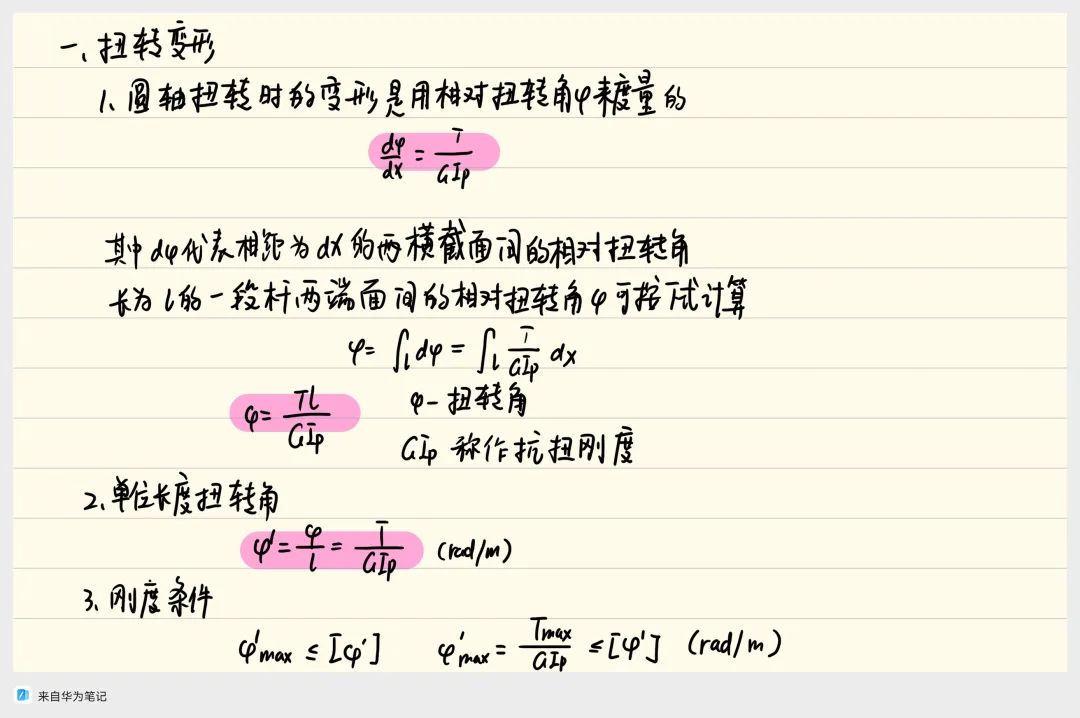 一、扭转变形
1、圆轴扭转时的变形是用相对扭转角φ来度量的
dφ/dx = T/GIp
其中dφ代表相距为dx的两横截面间的相对扭转角
长为l的一段杆两端面间的相对扭转角φ可按下式计算
φ= ∫l dφ = ∫l T/GIp dx
φ= Tl/GIp φ-扭转角
GIp 称作抗扭刚度
2、单位长度扭转角
φ'= φ/l = T/GIp (rad/m)
3、刚度条件
φ'max ≤ [φ'] φ'max = Tmax/GIp ≤ [φ'] (rad/m)
来自华为笔记